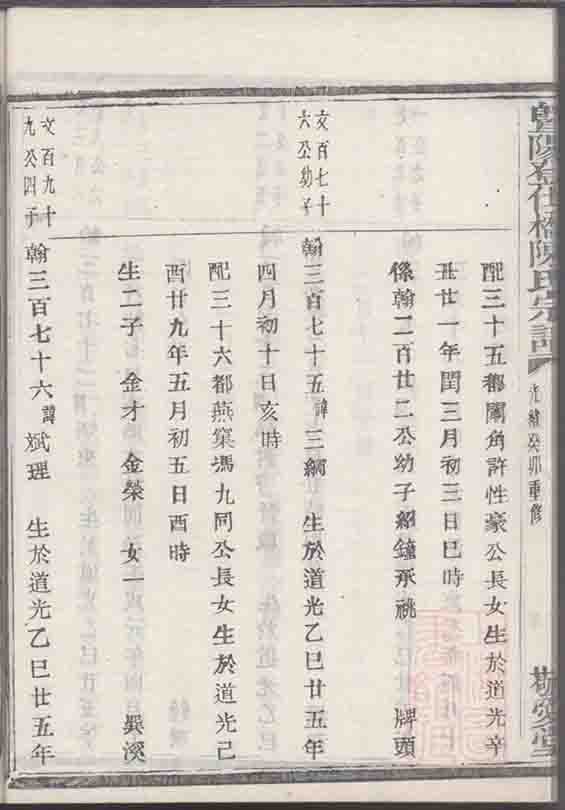 暨陽孫伍橋陳氏宗譜
光緒癸卯重修
敬愛堂
配三十五都闊角許性豪公長女生於道光辛
丑廿一年閏三月初三日巳時
係翰二百廿二公幼子紹鐘承祧 牌頭
文百七十
六公幼子
翰三百七十五諱三綱 生於道光乙巳廿五年
四月初十日亥時
配三十六都燕窠馮九同公長女生於道光己
酉廿九年五月初五日酉時
生二子 金才 金榮 女一 巽溪
文百九十
九公四子
翰三百七十六諱斌理 生於道光乙巳廿五年